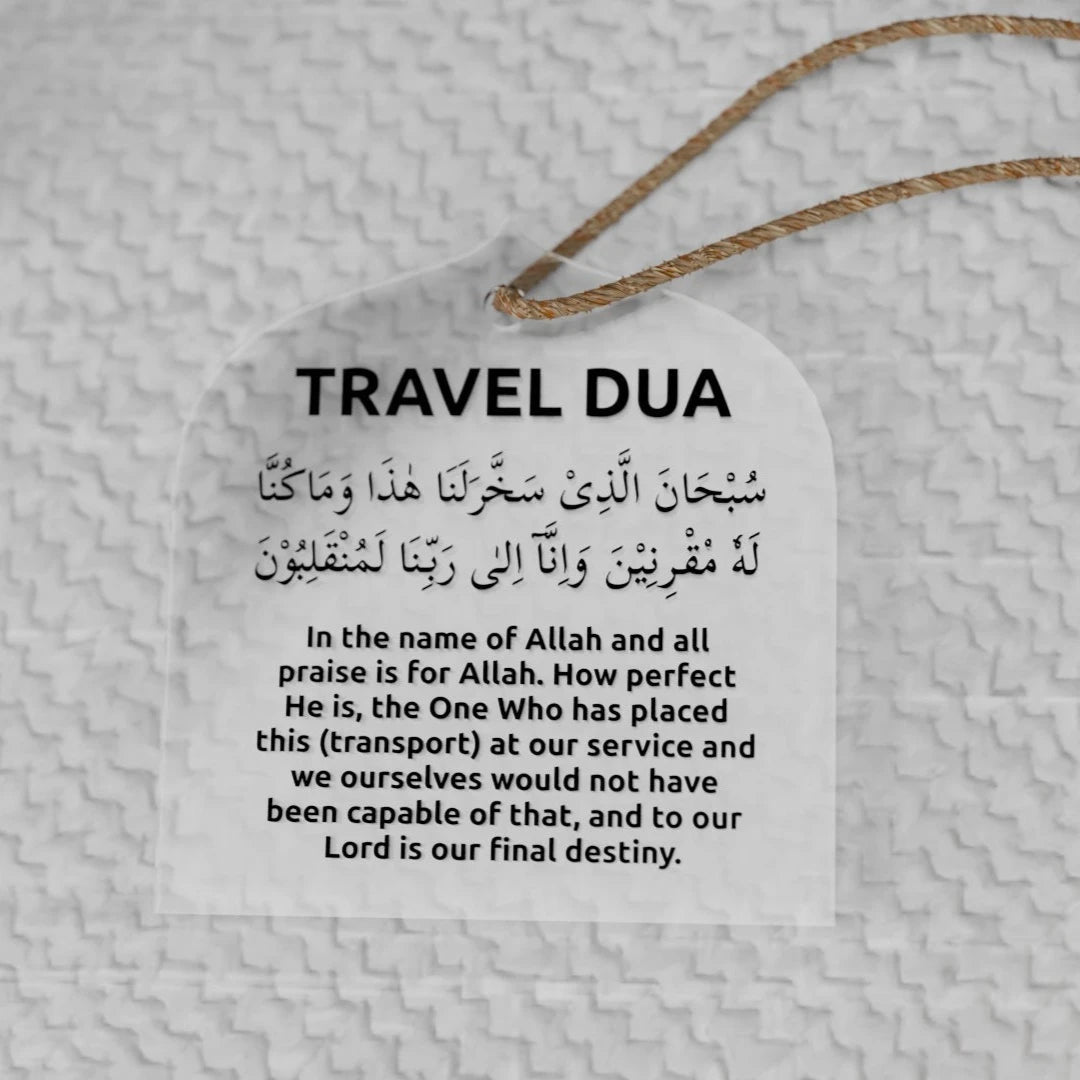 TRAVEL DUA
سُبْحَانَ الَّذِىْ سَخَّرَلَنَا هٰذَا وَمَاكُنَّا
لَهٗ مْقْرِنِيْنَ وَاِنَّآ اِلٰى رَبِّنَا لَمُنْقَلِبُوْنَ
In the name of Allah and all
praise is for Allah. How perfect
He is, the One Who has placed
this (transport) at our service and
we ourselves would not have
been capable of that, and to our
Lord is our final destiny.